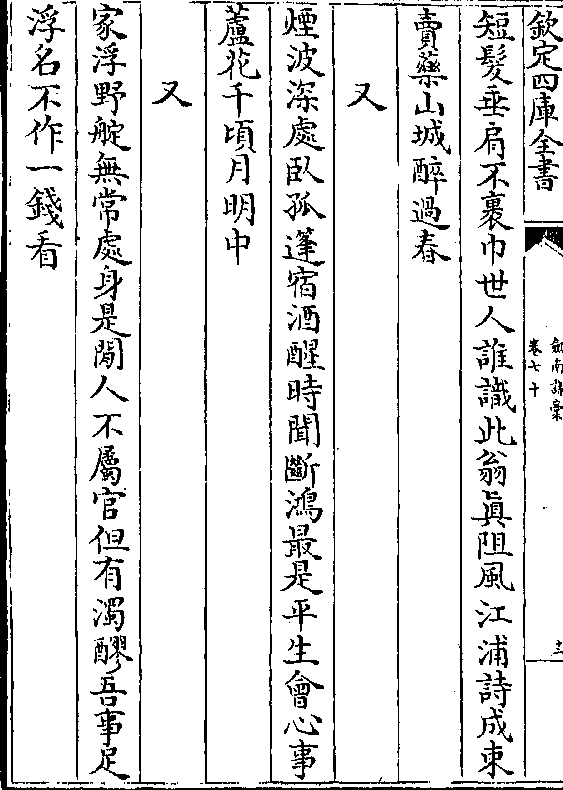 欽定四庫全書
劍南詩稾
卷七十
短髮垂肩不裹巾世人誰識此翁眞阻風江浦詩成束
賣藥山城醉過春
又
煙波深處臥孤篷宿酒醒時聞斷鴻最是平生會心事
蘆花千頃月明中
又
家浮野艇無常處身是閒人不屬官但有濁醪吾事足
浮名不作一錢看